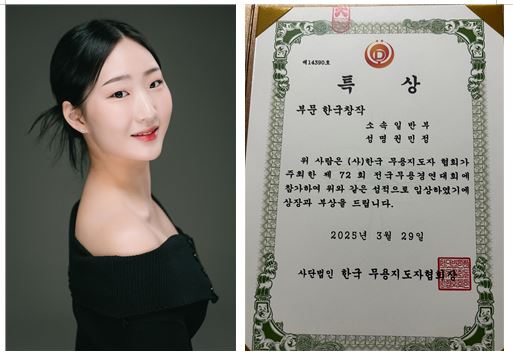 제14390호
특 상
부문 한국창작
소속 일반부
성명 권민정
위 사람은 (사)한국 무용지도자 협회가
주최한 제 72 회 전국무용경연대회에
참가하여 위와 같은 성적으로 입상하였기에
상장과 부상을 드립니다.
2025년 3월 29일
사단법인 한국 무용지도자협회장